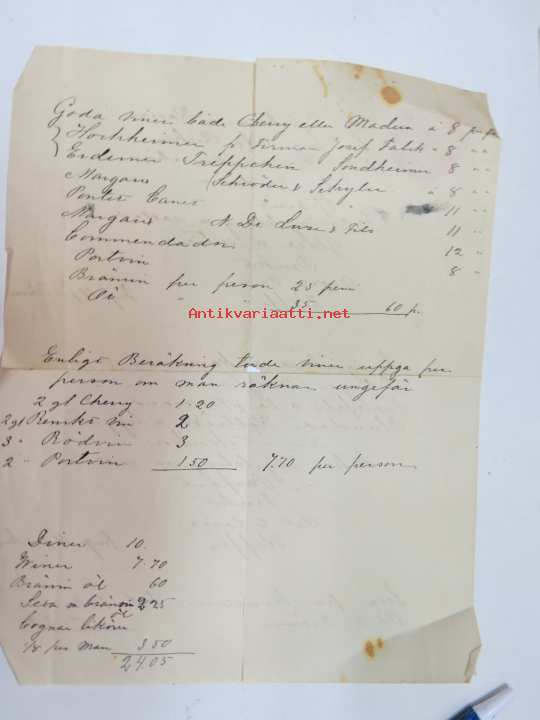 Goda viner både Cherry eller Madeira à 8 per fla
Hochheimer fr firman Josef Falck " 8 " "
Erdener Treppchen Sondheimer 8 " "
Margaux (Schröder & Schyler à 8 " "
Pontet Canet " " 11 " "
Margaux N. De Luze & Fils 11 " "
Commendador 12 "
Portvin 8 "
Brännvin per person 25 peni
Öl " " 35 60 p.
Antikvariaatti.net
Enligt Beräkning torde viner uppgå per
person om man räknar ungefär
2 gl Cherry 1.20
2 gl Renskt vin 2
3 " Rödvin 3
2 " Portvin 1.50 7.70 per person
Diner 10.
Winer 7.70
Brännvin öl 60
Sexa m brännvin 2 25
öl
Cognac likör
1/8 per man 3 50
24.05